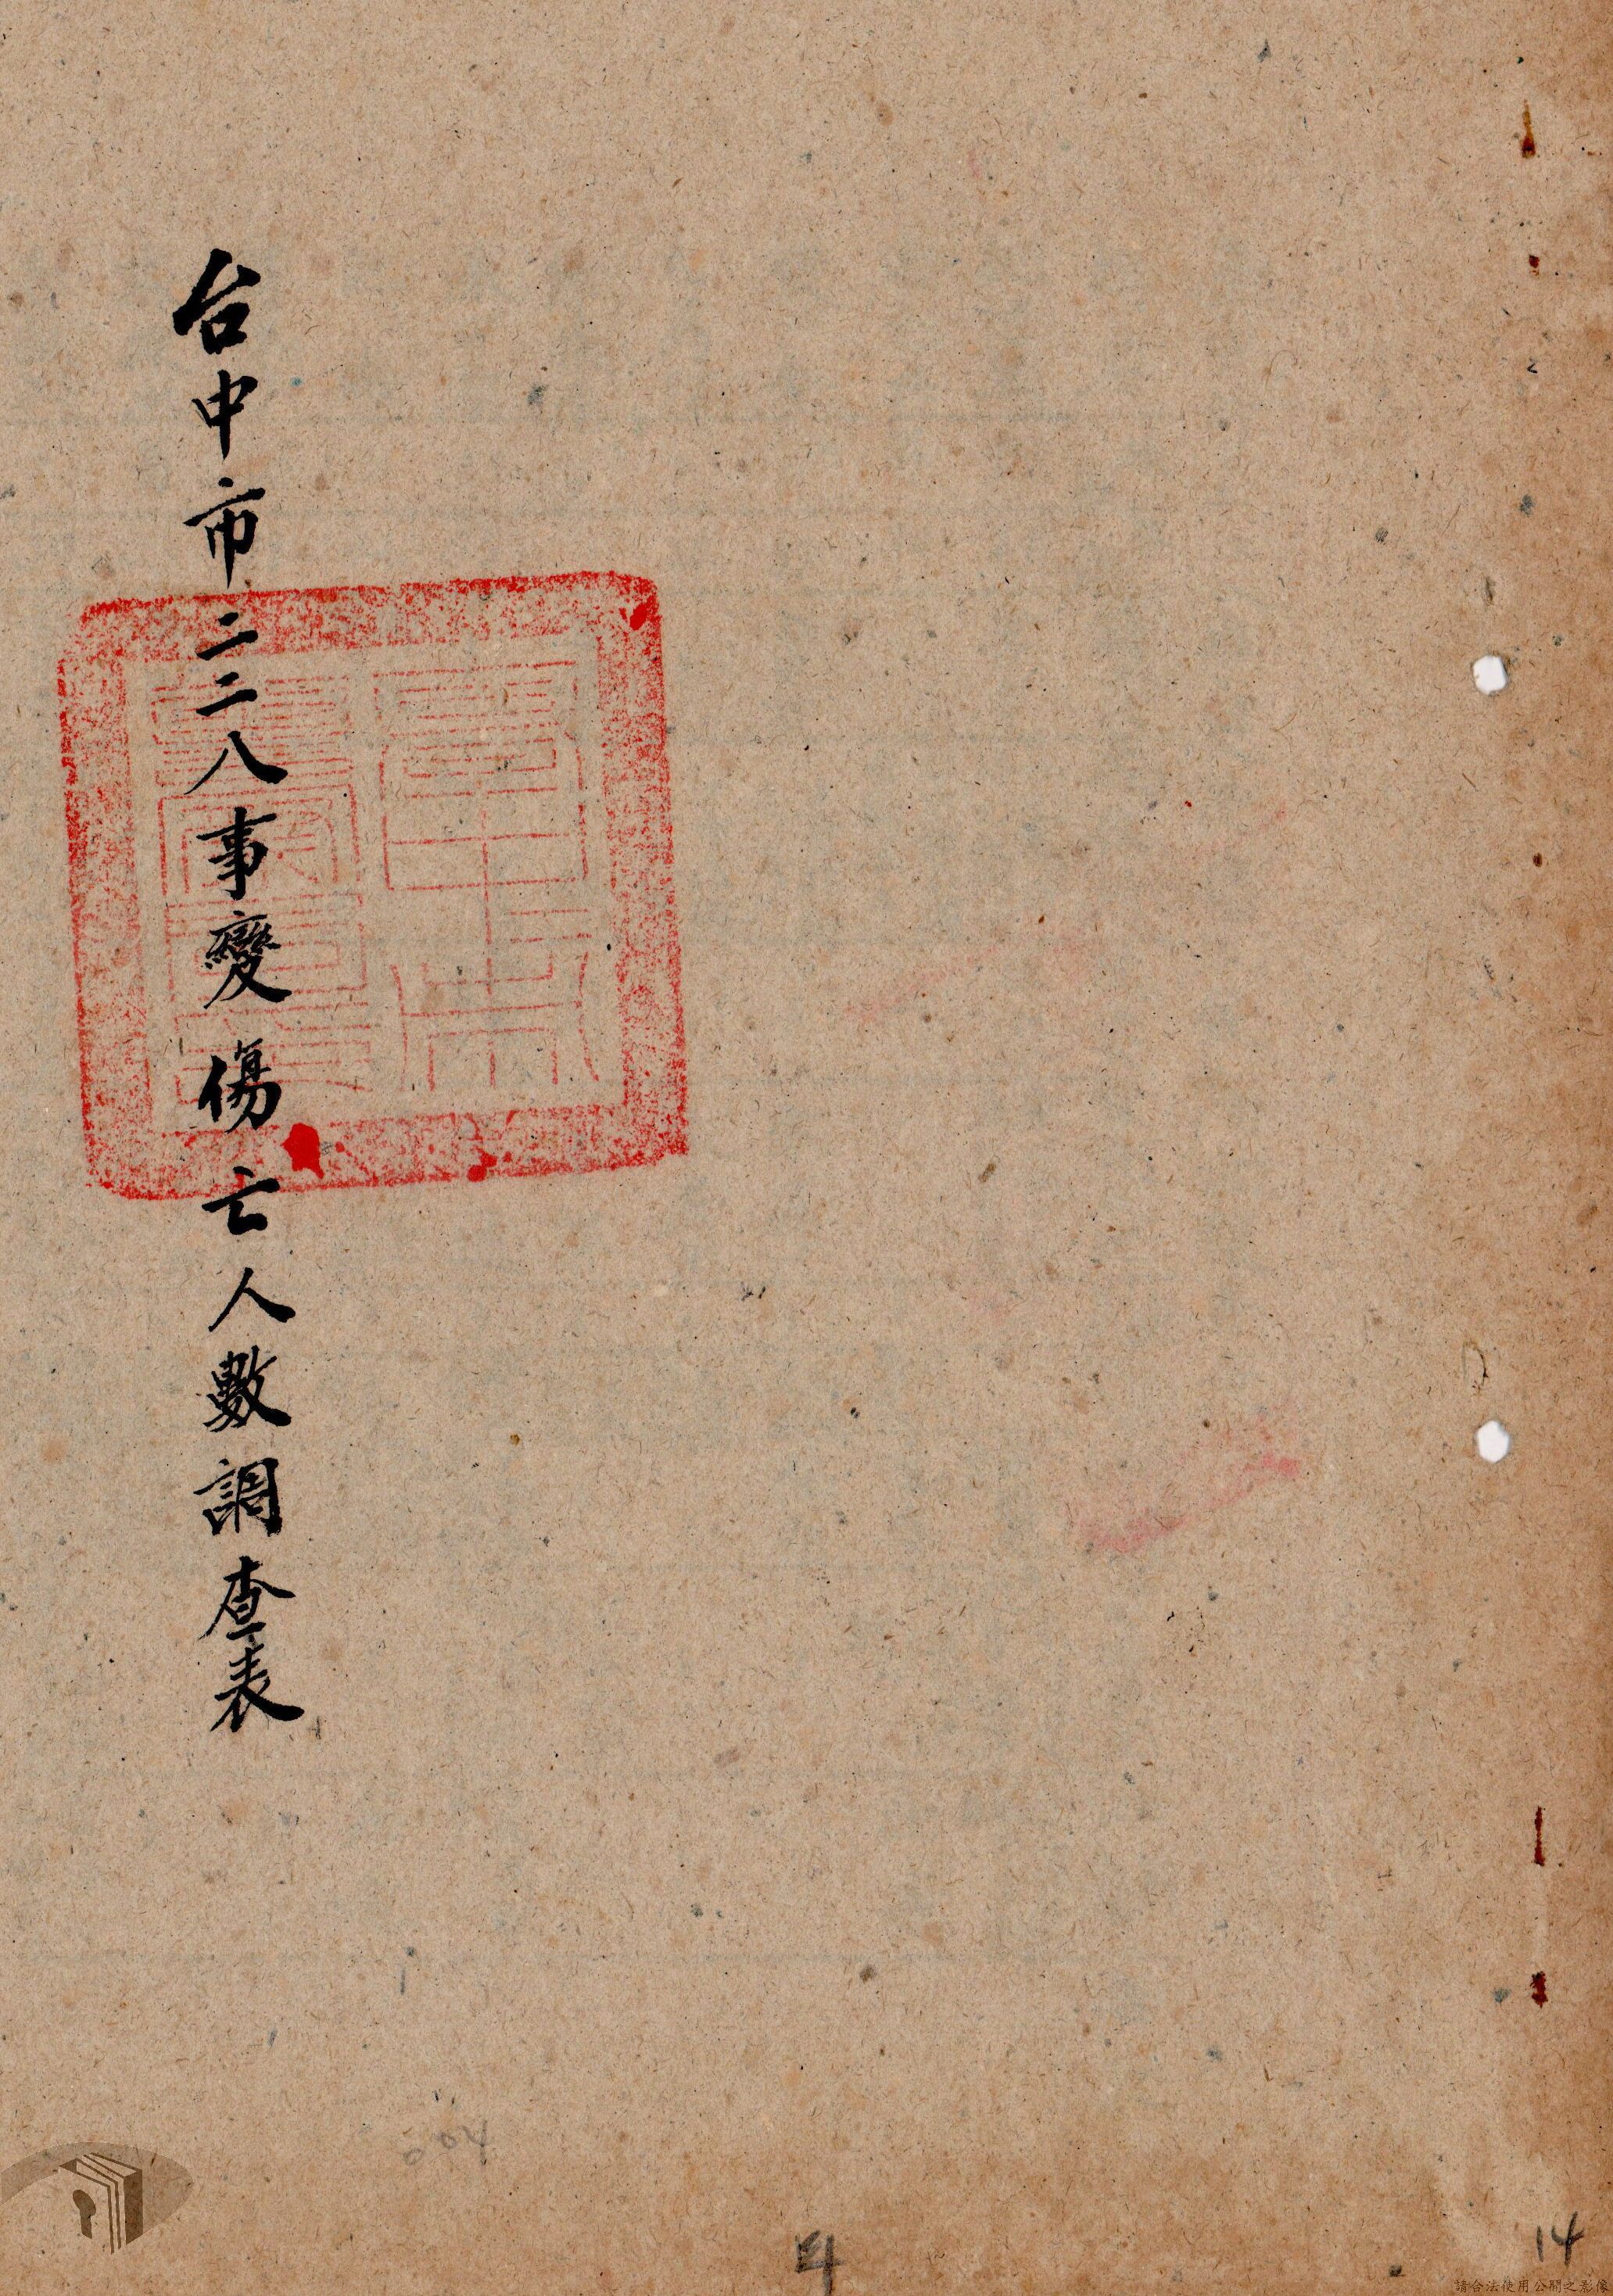 台中市二二八事變傷亡人數調查表
004
14
請合法使用公開之影像